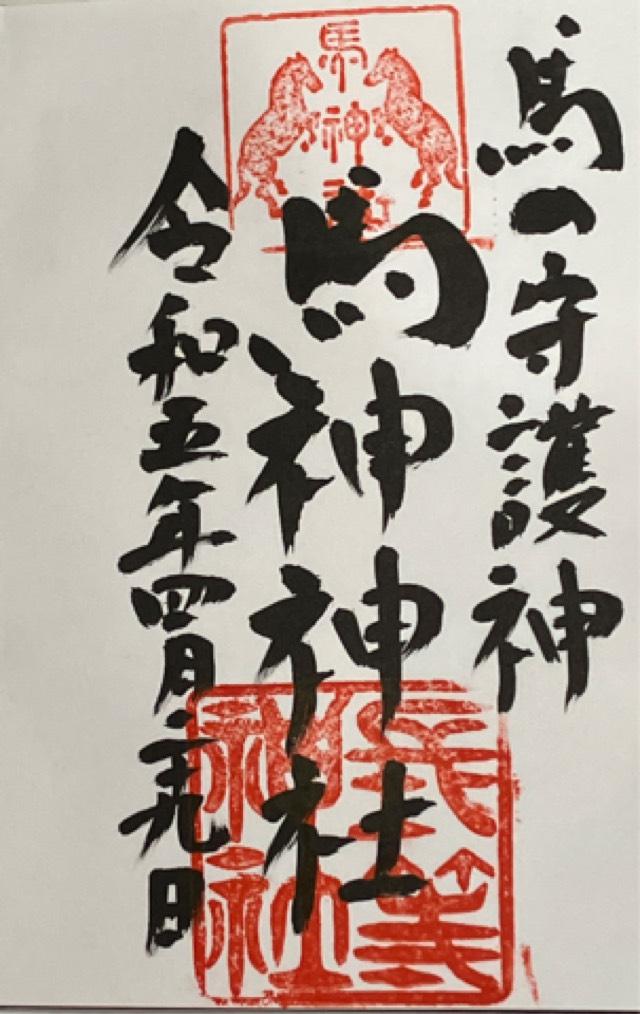 馬の守護神
馬神神社
令和五年四月二十九日
馬神
長等神社